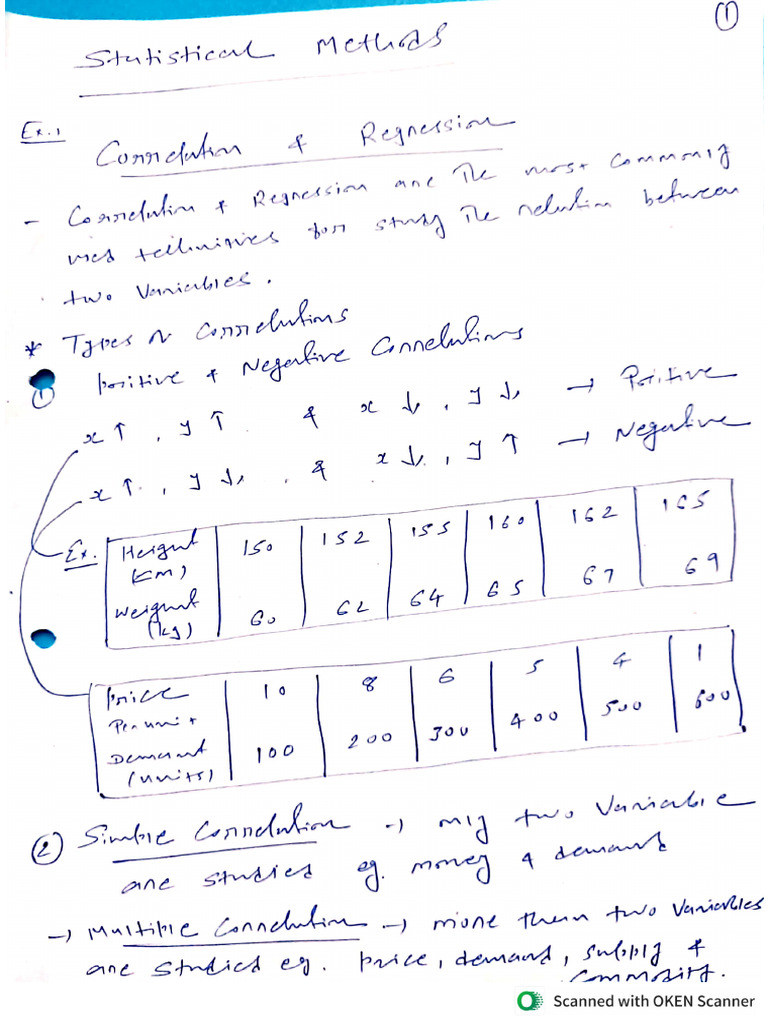 ①
Statistical Methods
Ex.1
Correlation & Regression
- Correlation & Regression are the most commonly
used techniques for study the relation between
two variables.
* Types of Correlations
① Positive & Negative Correlations
x ↑ , y ↑ & x ↓ , y ↓ → Positive
x ↑ , y ↓ , & x ↓ , y ↑ → Negative
Ex. Height (cm) 150 152 155 160 162 165
Weight (kg) 60 62 64 65 67 69
Price Per unit 10 8 6 5 4 1
Demand (units) 100 200 300 400 500 600
② Simple Correlation → only two variable
are studied eg. money & demand
→ Multiple Correlation → more than two variables
are studied eg. price, demand, supply &
commodity.
Scanned with OKEN Scanner